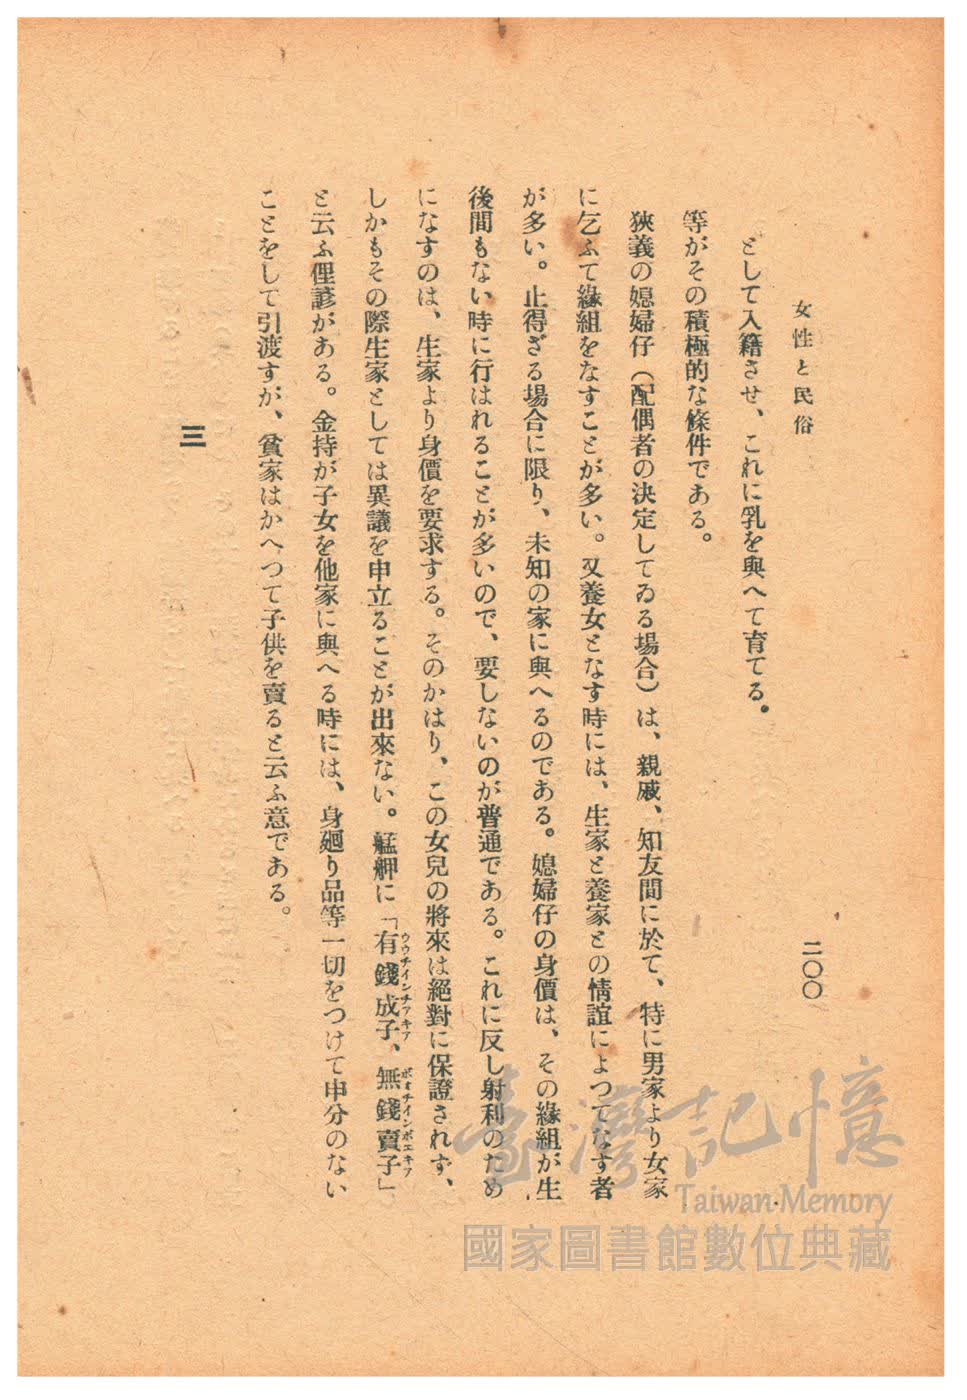 女性と民俗
二〇〇
として入籍させ、これに乳を與へて育てる。
等がその積極的な條件である。
狹義の媳婦仔（配偶者の決定してゐる場合）は、親戚、知友間に於て、特に男家より女家
に乞ふて緣組をなすことが多い。又養女となす時には、生家と養家との情誼によつてなす者
が多い。止得ざる場合に限り、未知の家に與へるのである。媳婦仔の身價は、その緣組が生
後間もない時に行はれることが多いので、要しないのが普通である。これに反し射利のため
になすのは、生家より身價を要求する。そのかはり、この女兒の將來は絕對に保證されず、
しかもその際生家としては異議を申立ることが出來ない。艋舺に「有錢成子、無錢賣子」
ウウチインチアキア ボオチインボエキア
と云ふ俚諺がある。金持が子女を他家に與へる時には、身廻り品等一切をつけて申分のない
ことをして引渡すが、貧家はかへつて子供を賣ると云ふ意である。
三
臺灣記憶
Taiwan Memory
國家圖書館數位典藏